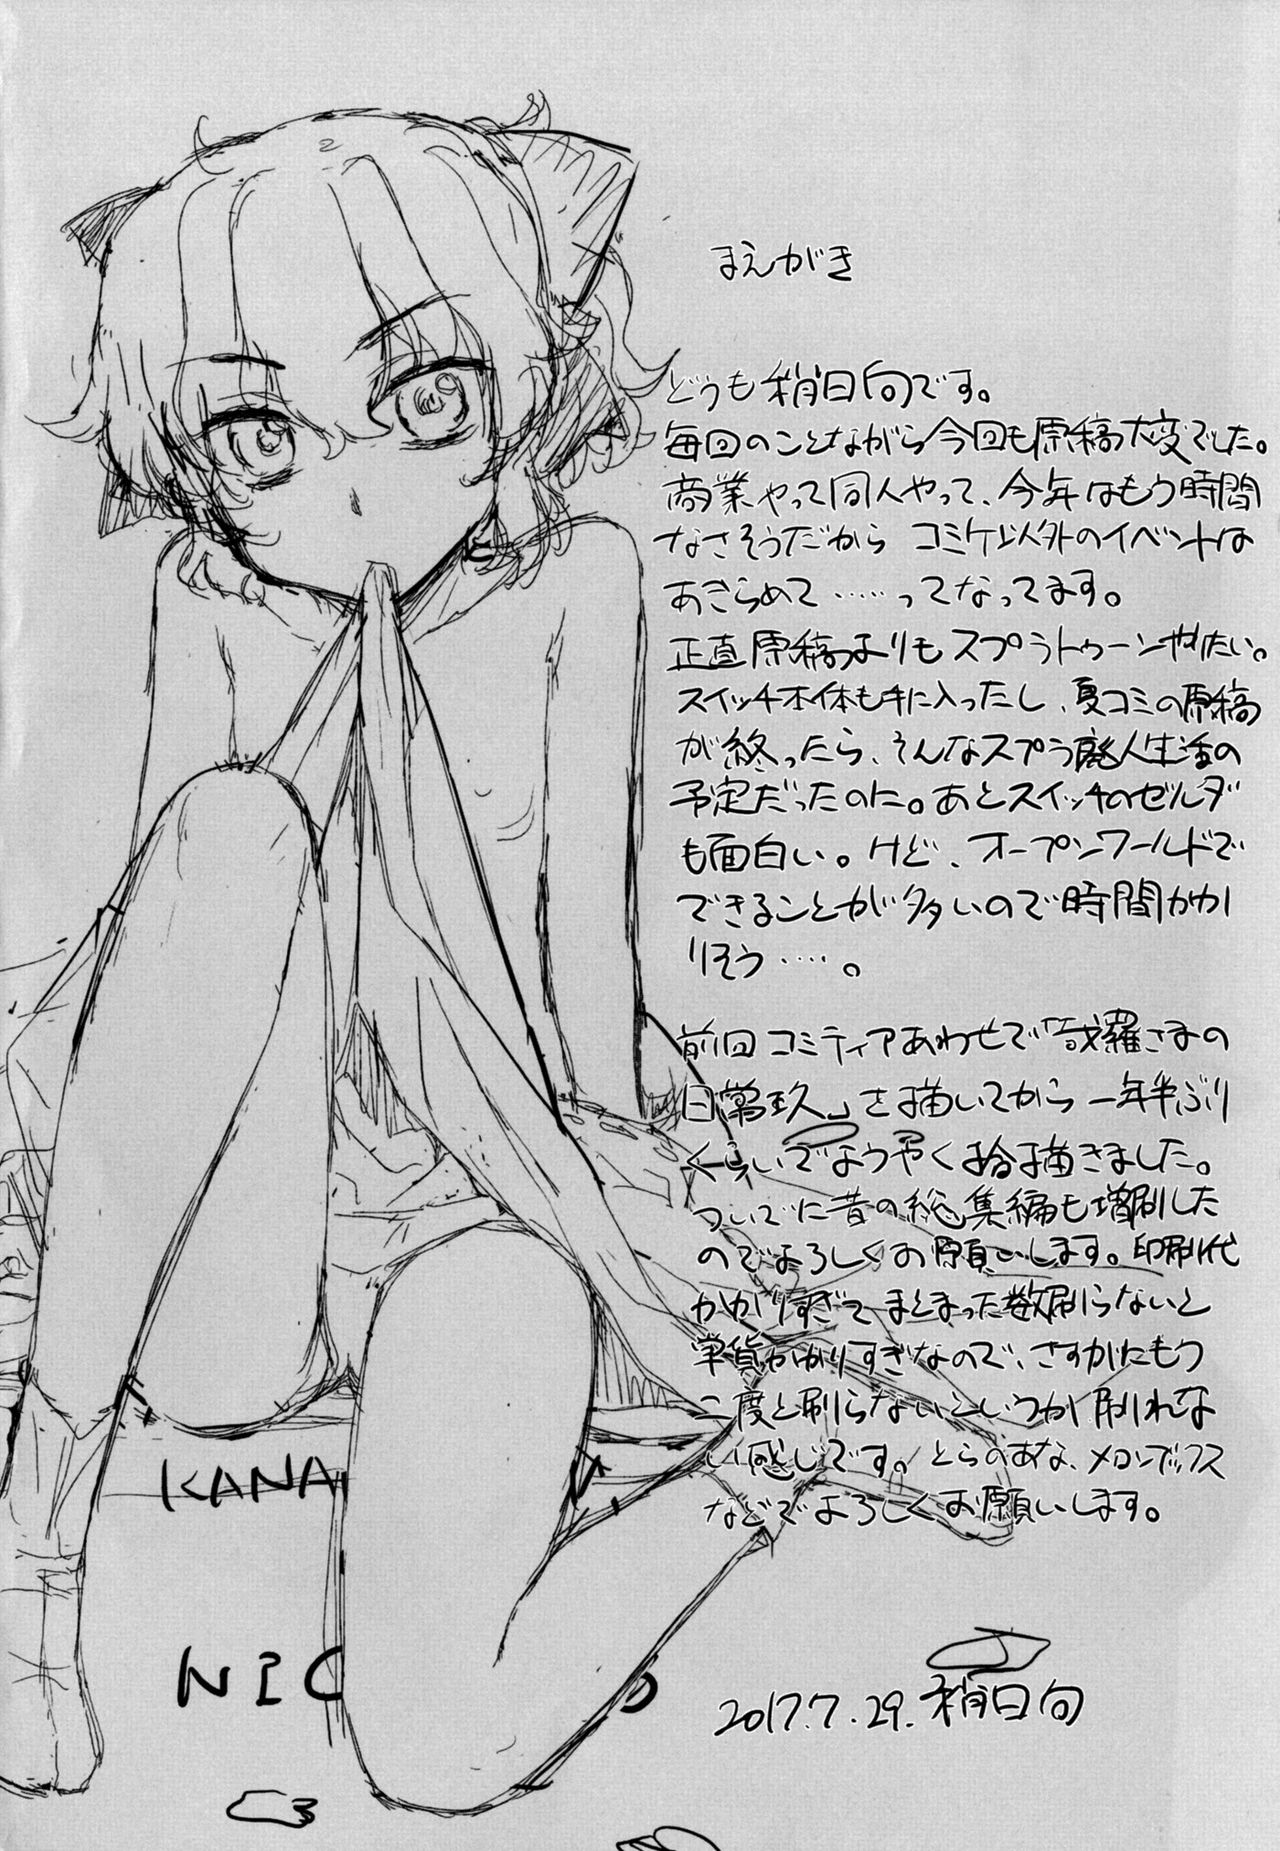 まえがき
どうも稍日向です。
毎回のことながら今回も原稿大変でした。
商業やって同人やって、今年はもう時間
なさそうだから コミケ以外のイベントは
あきらめて……ってなってます。
正直原稿よりもスプラトゥーンやりたい。
スイッチ本体も手に入ったし、夏コミの原稿
が終ったら、そんなスプラ廃人生活の
予定だったのに。あとスイッチのゼルダ
も面白い。けど、オープンワールドで
できることが多いので時間かか
りそう……。
前回コミティアあわせで「哉羅さまの
日常玖」を描いてから一年半ぶり
くらいでようやく拾描きました。
ついでに昔の総集編も増刷した
のでよろしくお願いします。印刷代
かかりすぎてまとまった数刷らないと
単貨かかりすぎなので、さすがにもう
二度と刷らないというか刷れな
い感じです。とらのあな、メロンブックス
などでよろしくお願いします。
KANA
NIC
2017.7.29.稍日向